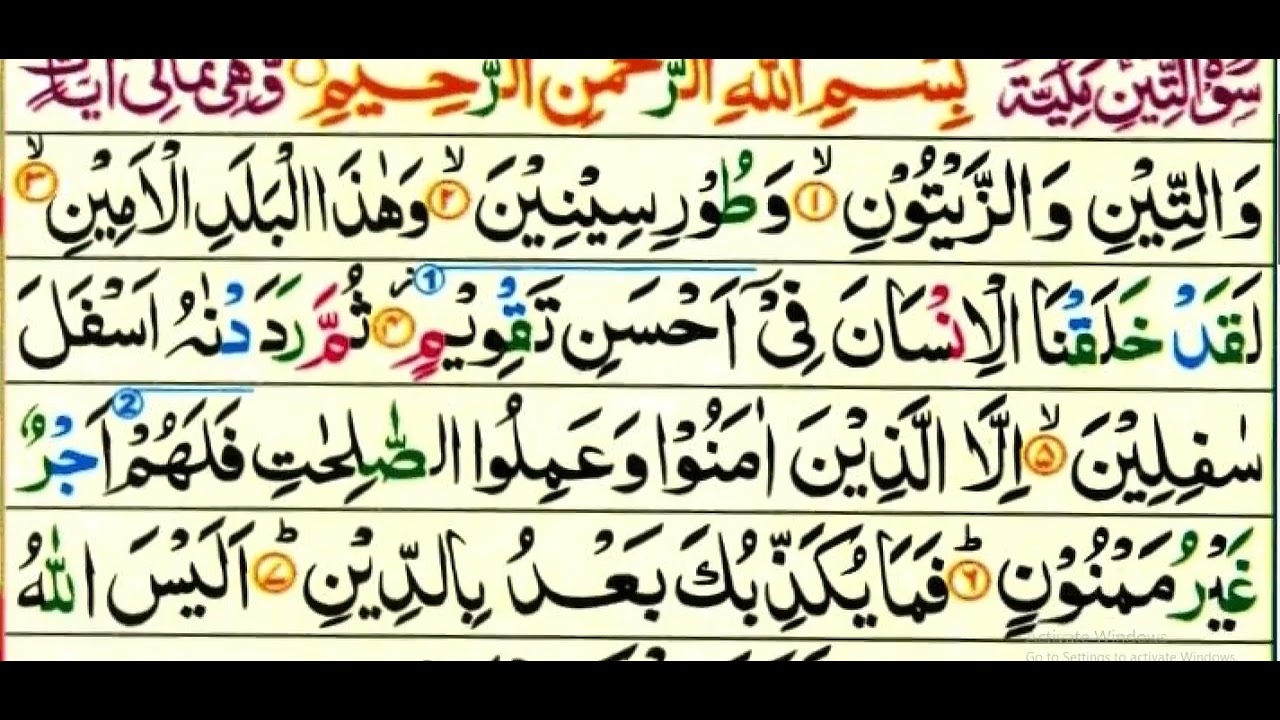 سُوْرَةُ التِّيْنِ مَكِّيَّةٌ بِسْمِ اللّٰهِ الرَّحْمٰنِ الرَّحِيْمِ ○ وَّهِىَ ثَمَانِىْ اٰيَاتٍ
وَالتِّيْنِ وَالزَّيْتُوْنِ ۙ﴿۱﴾ وَطُوْرِ سِيْنِيْنَ ۙ﴿۲﴾ وَهٰذَا الْبَلَدِ الْاَمِيْنِ ۙ﴿۳﴾
لَقَدْ خَلَقْنَا الْاِنْسَانَ فِىْۤ اَحْسَنِ تَقْوِيْمٍ ۫﴿۴﴾ ثُمَّ رَدَدْنٰهُ اَسْفَلَ
سٰفِلِيْنَ ۙ﴿۵﴾ اِلَّا الَّذِيْنَ اٰمَنُوْا وَعَمِلُوا الصّٰلِحٰتِ فَلَهُمْ اَجْرٌ
غَيْرُ مَمْنُوْنٍ ؕ﴿۶﴾ فَمَا يُكَذِّبُكَ بَعْدُ بِالدِّيْنِ ؕ﴿۷﴾ اَلَيْسَ اللّٰهُ
Activate Windows
Go to Settings to activate Windows.